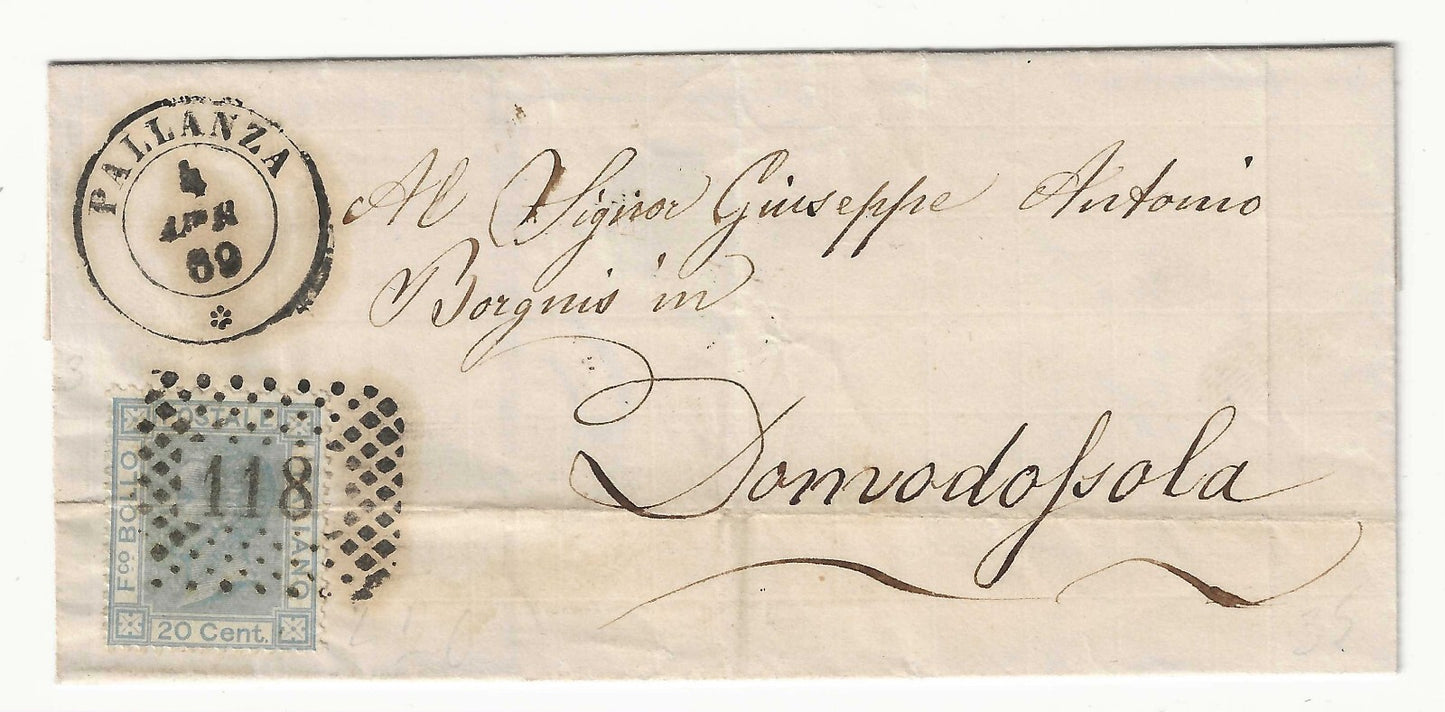 PALLANZA
4
APR
69
Al Signor Giuseppe Antonio
Borgnis in
Domodossola
POSTALE
Fco BOLLO
ITALIANO
118
20 Cent.
35